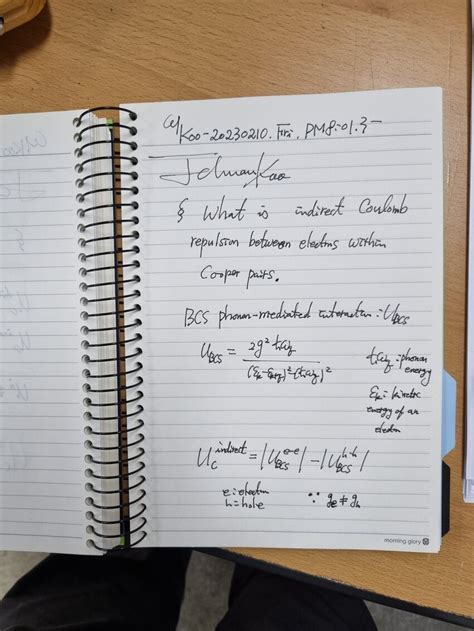 Koo-20230210. Fri. PM8:01.37
Je Huan Koo
§ What is indirect Coulomb
repulsion between electrons within
Cooper pairs.
BCS phonon-mediated interaction: U_BCS
U_BCS = 2g²ħω_q / (ε_k - ε_k+q)² - (ħω_q)²
ħω_q : phonon energy
ε_k : kinetic energy of an electron
U_c^indirect = |U_BCS^e-e| - |U_BCS^h-h|
e = electron
h = hole
∵ g_e ≠ g_h
morning glory